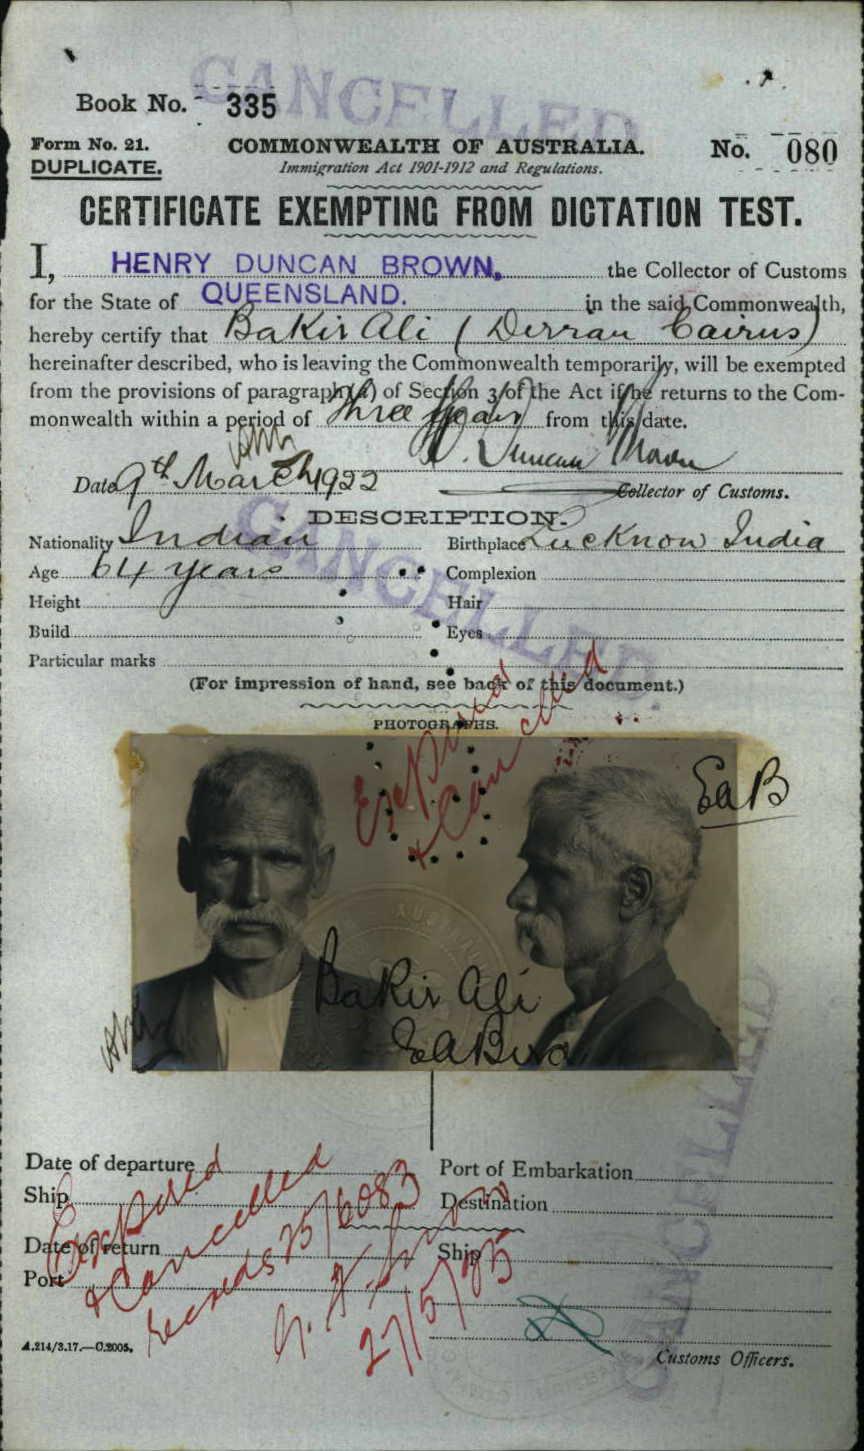 CANCELLED
Book No. 335
Form No. 21. COMMONWEALTH OF AUSTRALIA. No. 080
DUPLICATE. Immigration Act 1901-1912 and Regulations.
CERTIFICATE EXEMPTING FROM DICTATION TEST.
I, HENRY DUNCAN BROWN, the Collector of Customs
for the State of QUEENSLAND. in the said Commonwealth,
hereby certify that Bakir Ali (Derran Cairns)
hereinafter described, who is leaving the Commonwealth temporarily, will be exempted
from the provisions of paragraph (a) of Section 3 of the Act if he returns to the Com-
monwealth within a period of three years from this date.
Date 9th March 1922 H. Duncan Brown
Collector of Customs.
CANCELLED.
DESCRIPTION.
Nationality Indian Birthplace Lucknow India
Age 64 years Complexion
Height Hair
Build Eyes
Particular marks
(For impression of hand, see back of this document.)
PHOTOGRAPHS.
Expired
& Cancelled
EaB
Bakir Ali
CANCELLED
Date of departure Port of Embarkation
Ship Destination
Date of return Ship
Port
Expired
& Cancelled
records 25/6083
27/5/25
A.214/3.17.—C.2005. Customs Officers.